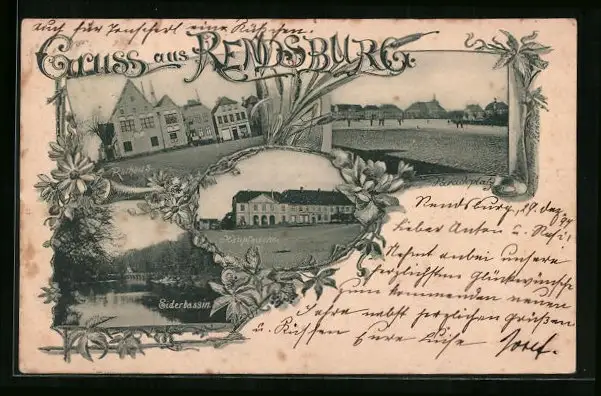 auch für Jenscherl eine Küßchen.
Gruss aus RENDSBURG.
Rathaus
Paradeplatz
Hauptwache
Eiderbassin
Rendsburg, 29. Dez. 97
Lieber Anton u. Resi!
Nehmt anbei unsere
herzlichsten Glückwünsche
zum kommenden neuen
Jahre nebst herzlichen Grüßen
u. Küssen Eure Luise Josef.